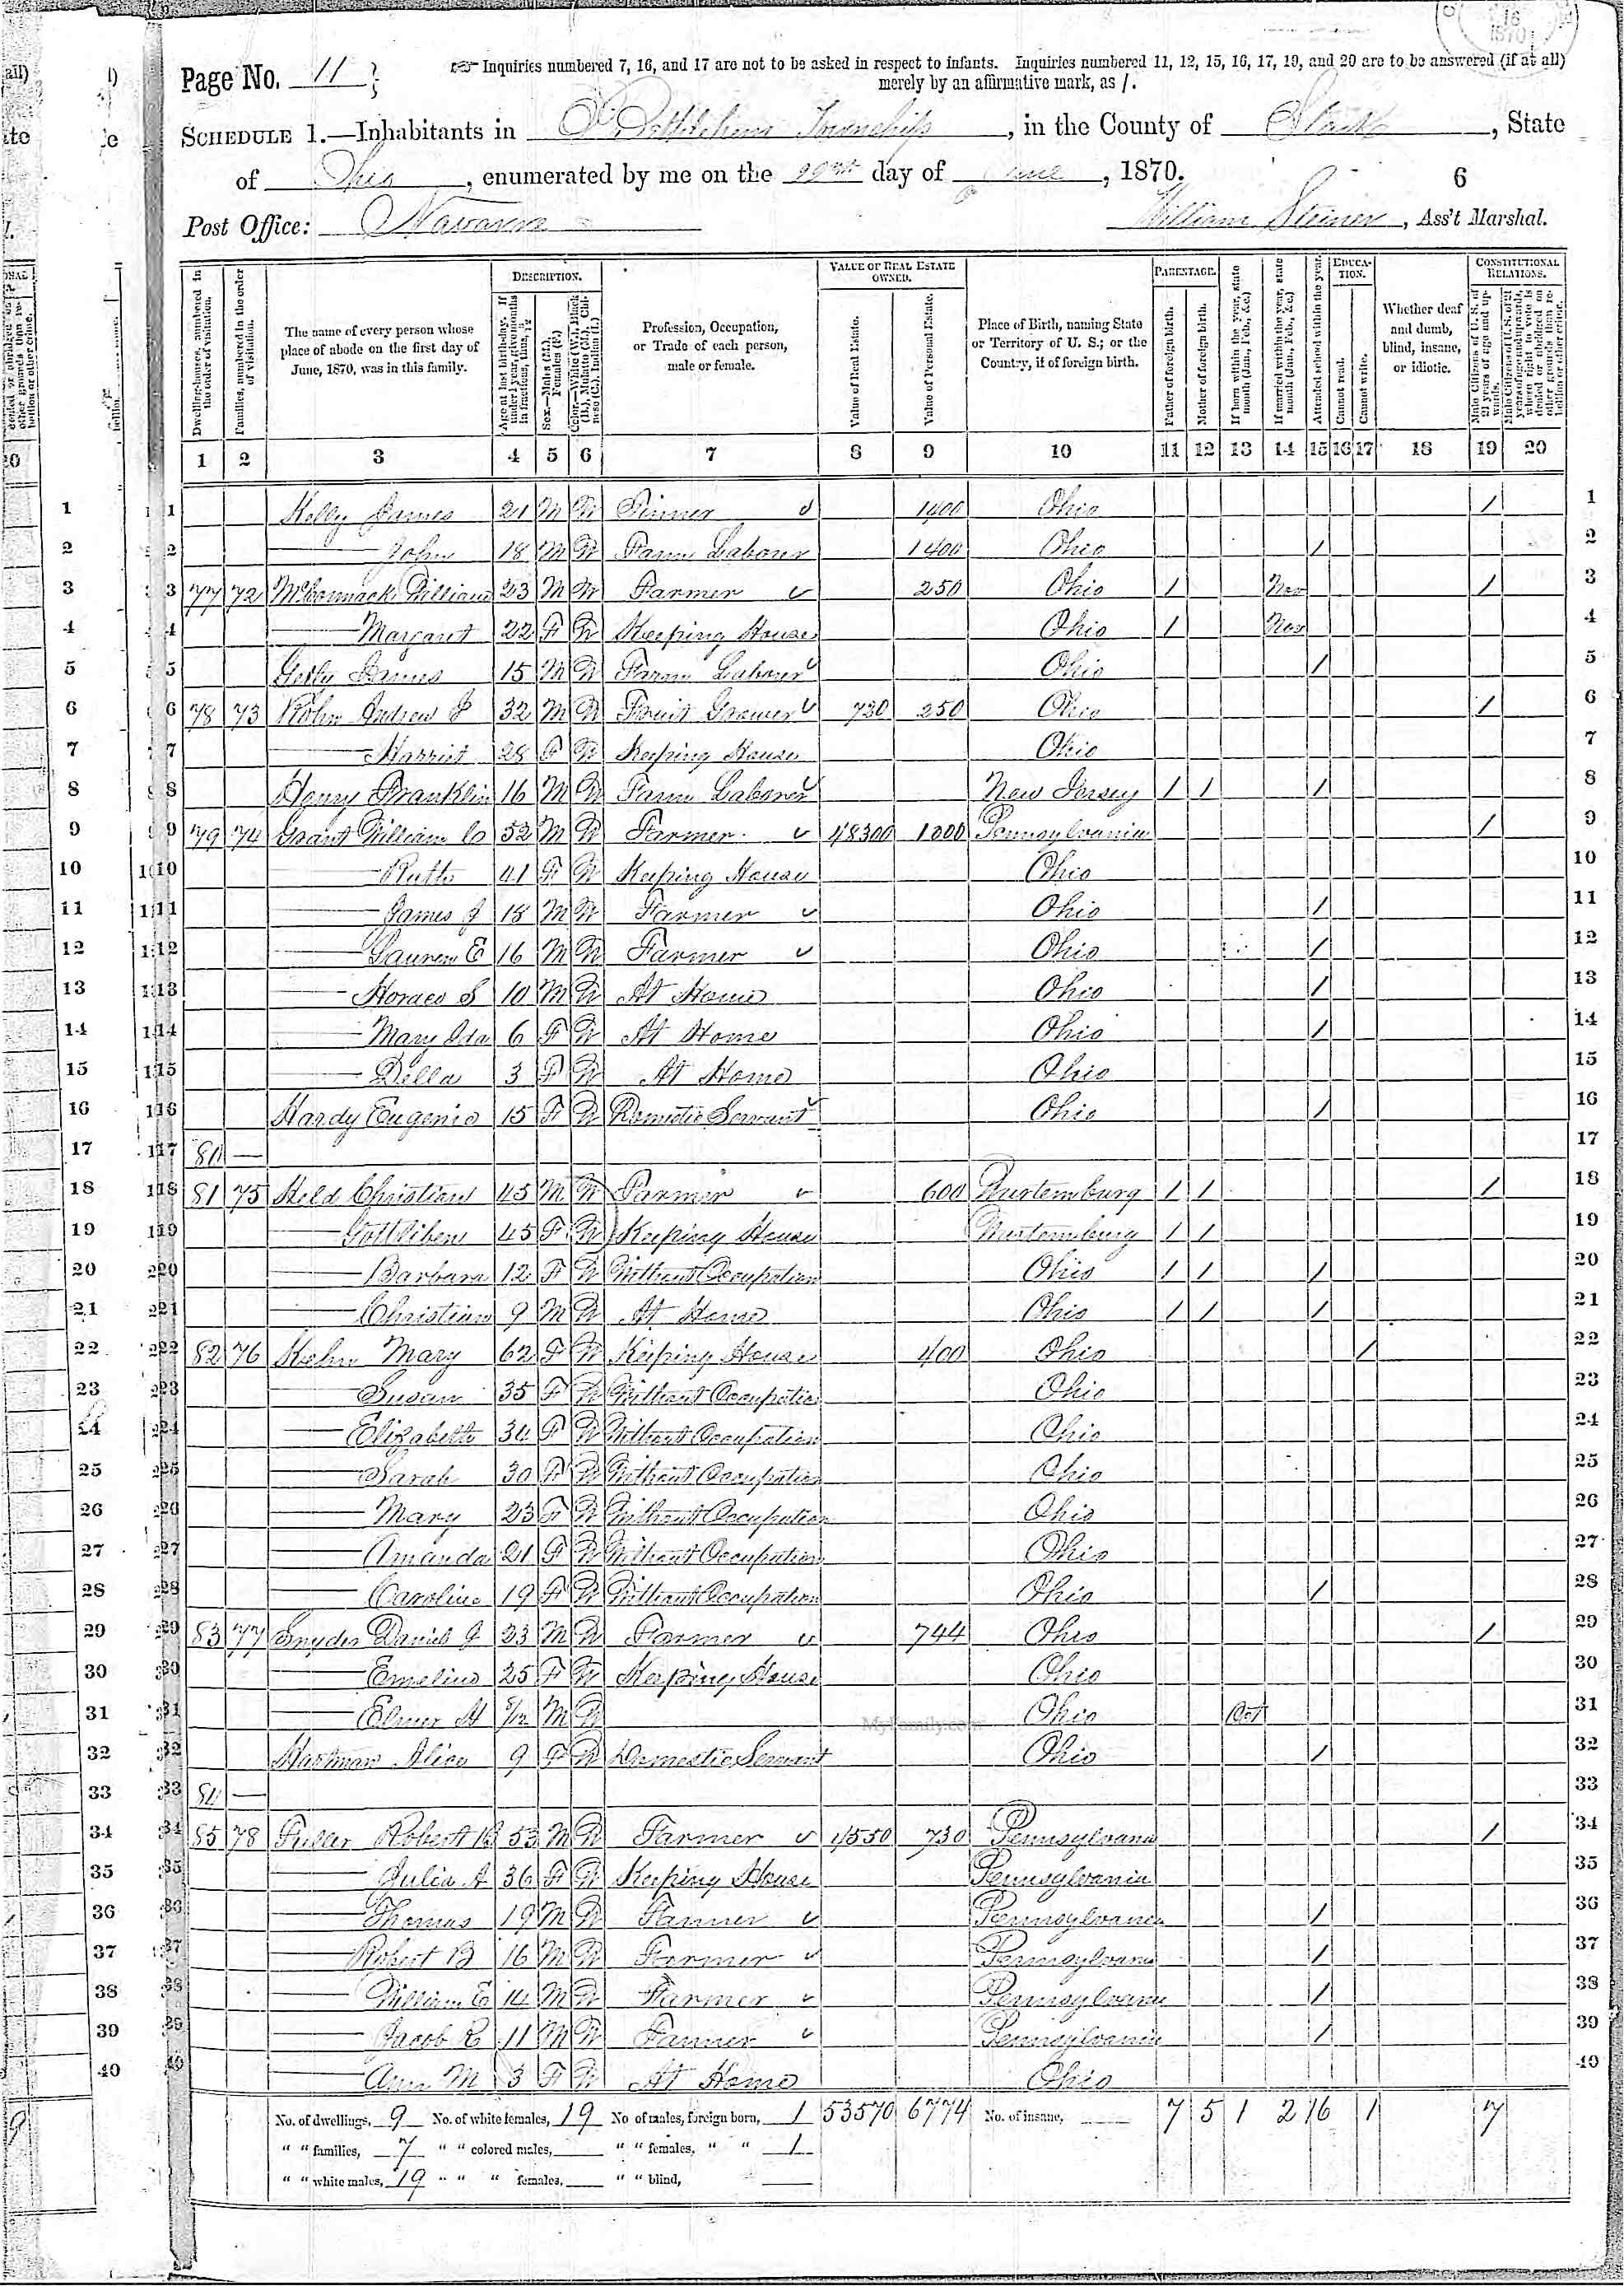 Page No. 11
Inquiries numbered 7, 16, and 17 are not to be asked in respect to infants. Inquiries numbered 11, 12, 15, 16, 17, 19, and 20 are to be answered (if at all)
merely by an affirmative mark, as /.
SCHEDULE 1.—Inhabitants in Bethlehem Township, in the County of Stark, State
of Ohio, enumerated by me on the day of June, 1870.
6
Post Office: Navarre
William Steiner, Ass't Marshal.
DESCRIPTION. VALUE OF REAL ESTATE OWNED. PARENTAGE. EDUCATION. CONSTITUTIONAL RELATIONS.
Dwelling-houses, numbered in the order of visitation.
Families, numbered in the order of visitation.
The name of every person whose place of abode on the first day of June, 1870, was in this family.
Age at last birth-day. If under 1 year, give months in fractions, thus, 3/12
Sex.—Males (M.), Females (F.)
Color.—White (W.), Black (B.), Mulatto (M.), Chinese (C.), Indian (I.)
Profession, Occupation, or Trade of each person, male or female.
Value of Real Estate.
Value of Personal Estate.
Place of Birth, naming State or Territory of U. S.; or the Country, if of foreign birth.
Father of foreign birth.
Mother of foreign birth.
If born within the year, state month (Jan., Feb., &c.)
If married within the year, state month (Jan., Feb., &c.)
Attended school within the year.
Cannot read.
Cannot write.
Whether deaf and dumb, blind, insane, or idiotic.
Male Citizens of U. S. of 21 years of age and upwards.
Male Citizens of U. S. of 21 years of age and upwards, where right to vote is denied or abridged on other grounds than rebellion or other crime.
1 2 3 4 5 6 7 8 9 10 11 12 13 14 15 16 17 18 19 20
1 Kelly James 21 M W 1400 Ohio / 1
2 —— John 18 M W Farm Laborer 1400 Ohio / 2
3 77 72 McCormack William 23 M W Farmer 250 Ohio / Nov / 3
4 —— Margaret 22 F W Keeping House Ohio / Nov 4
5 James 15 M W Farm Laborer Ohio / 5
6 78 73 Andrew J 32 M W Fruit Grower 730 250 Ohio / 6
7 —— Harriet 28 F W Keeping House Ohio 7
8 Henry Franklin 16 M W Farm Laborer New Jersey / / / 8
9 79 74 Grant William C 52 M W Farmer 48300 1000 Pennsylvania / 9
10 —— Ruth 41 F W Keeping House Ohio 10
11 —— James J 18 M W Farmer Ohio / 11
12 —— Lauren E 16 M W Farmer Ohio / 12
13 —— Horace S 10 M W At Home Ohio / 13
14 —— Mary Ida 6 F W At Home Ohio / 14
15 —— Della 3 F W At Home Ohio 15
16 Hardy Eugenia 15 F W Domestic Servant Ohio / 16
17 80 — 17
18 81 75 Held Christian 45 M W Farmer 600 Wurtemburg / / / 18
19 —— 45 F W Keeping House Wurtemburg / / 19
20 —— Barbara 12 F W Without Occupation Ohio / / / 20
21 —— Christian 9 M W At Home Ohio / / / 21
22 82 76 Mary 62 F W Keeping House 400 Ohio / 22
23 —— Susan 35 F W Without Occupation Ohio 23
24 —— Elizabeth 34 F W Without Occupation Ohio 24
25 —— Sarah 30 F W Without Occupation Ohio 25
26 —— Mary 23 F W Without Occupation Ohio 26
27 —— Amanda 21 F W Without Occupation Ohio 27
28 —— Caroline 19 F W Without Occupation Ohio / 28
29 83 77 Snyder Daniel J 23 M W Farmer 744 Ohio / 29
30 —— Emeline 25 F W Keeping House Ohio 30
31 —— Elmer H M W Ohio Oct 31
MyFamily.com
32 Hartman Alice 9 F W Domestic Servant Ohio / 32
33 84 — 33
34 85 78 Fuller Robert B 53 M W Farmer 4550 730 Pennsylvania / 34
35 —— Julia A 36 F W Keeping House Pennsylvania 35
36 —— Thomas 19 M W Farmer Pennsylvania / 36
37 —— Robert B 16 M W Farmer Pennsylvania / 37
38 —— William E 14 M W Farmer Pennsylvania / 38
39 —— Jacob R 11 M W Farmer Pennsylvania / 39
40 —— Ann M 3 F W At Home Ohio 40
No. of dwellings, 9 No. of white females, 19 No of males, foreign born, 1 53570 6774 No. of insane, 7 5 1 2 16 1 7
" " families, 7 " " colored males, " " females, " " 1
" " white males, 19 " " " females, " " blind,